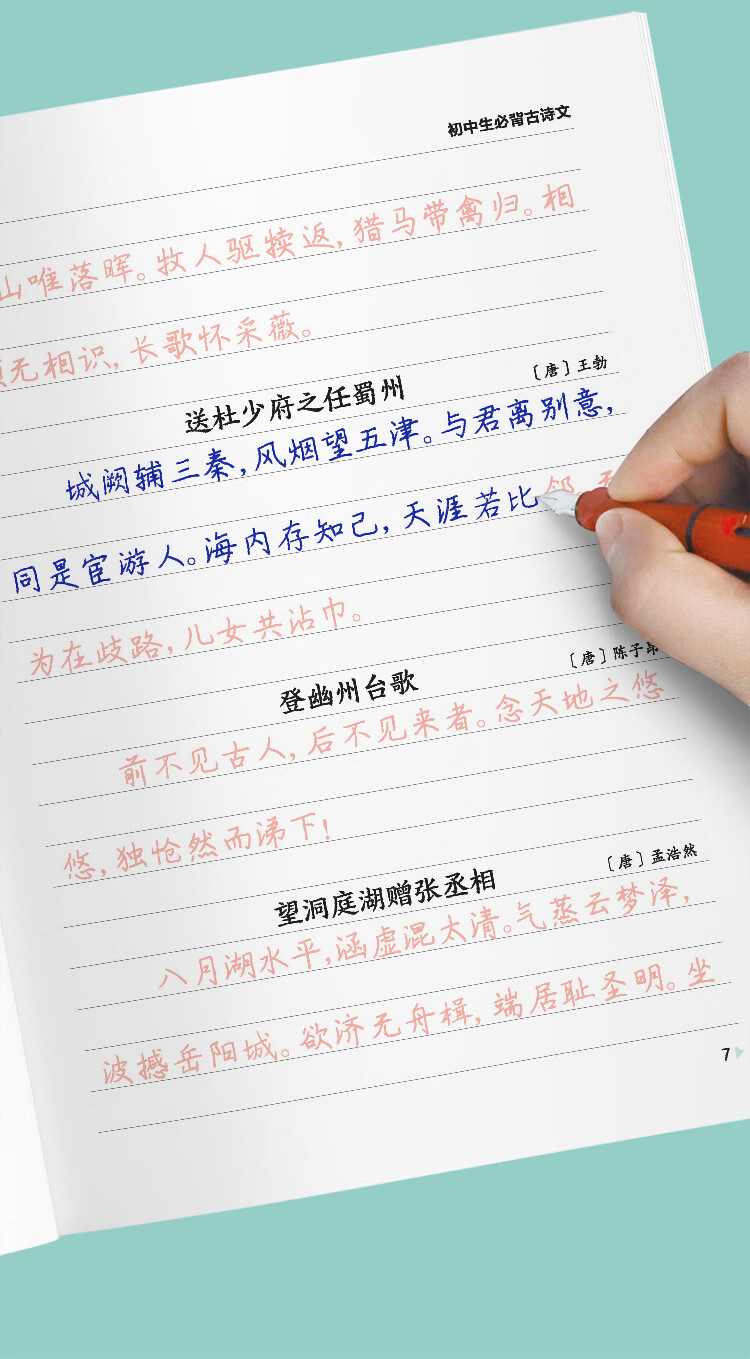 初中生必背古诗文
山唯落晖。牧人驱犊返，猎马带禽归。相
无相识，长歌怀采薇。
送杜少府之任蜀州
〔唐〕王勃
城阙辅三秦，风烟望五津。与君离别意，
同是宦游人。海内存知己，天涯若比邻
为在歧路，儿女共沾巾。
登幽州台歌
〔唐〕陈子昂
前不见古人，后不见来者。念天地之悠
悠，独怆然而涕下！
望洞庭湖赠张丞相
〔唐〕孟浩然
八月湖水平，涵虚混太清。气蒸云梦泽，
波撼岳阳城。欲济无舟楫，端居耻圣明。坐
7